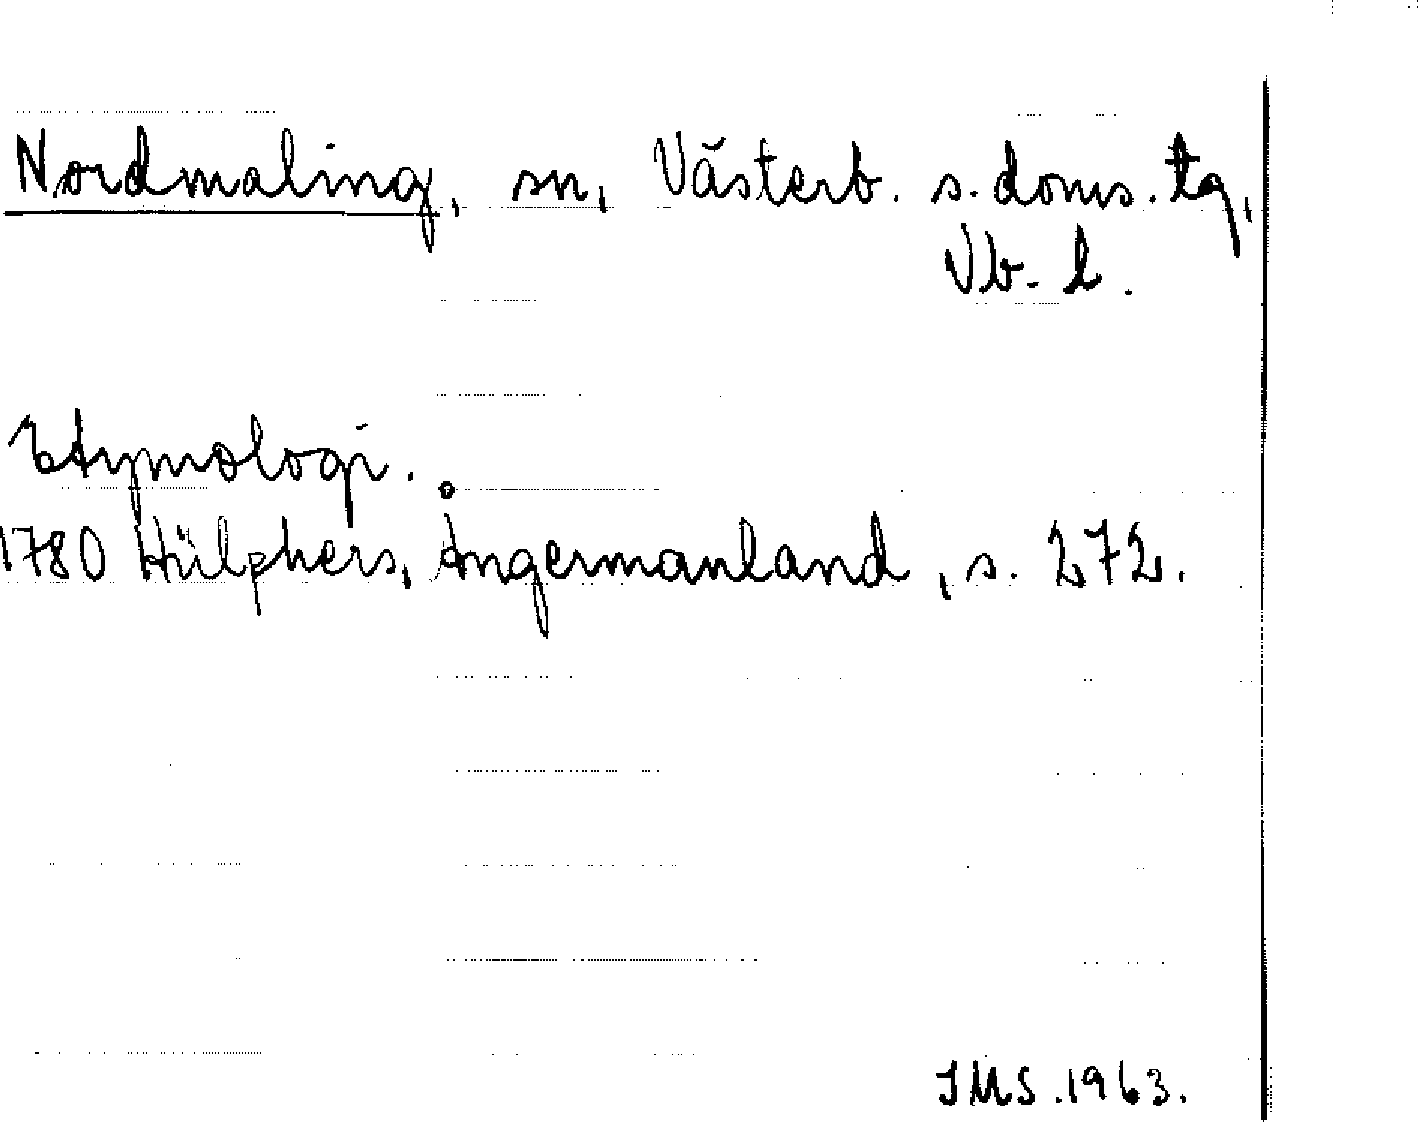 Nordmaling, sn, Västerb. s. doms. tg,
Vb. l.
Etymologi.
1780 Hülphers, Ångermanland, s. 272.
JMS. 1963.